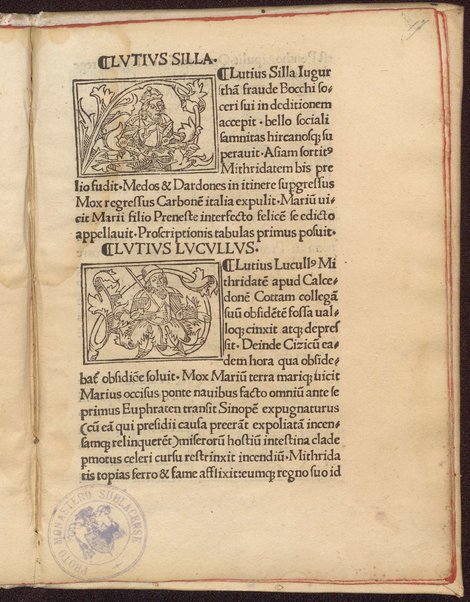 17
⁌LVTIVS SILLA.
⁌Lutius Silla Iugur
thā fraude Bocchi so⸗
ceri sui in deditionem
accepit · bello sociali
samnitas hircanosq̄ su
perauit · Asiam sortitꝰ
Mithridatem bis pre
lio fudit · Medos & Dardones in itinere supgressus
Mox regressus Carbonē italia expulit · Mariū ui⸗
cit Marii filio Preneste interfecto felicē se edicto
appellauit · Proscriptionis tabulas primus posuit ·
⁌LVTIVS LVCVLLVS ·
⁌Lutius Lucullꝰ Mi
thridatē apud Calce⸗
donē Cottam collegā
suū obsidētē fossa ual⸗
loq; cinxit atq; depres
sit · Deinde Cizicū ea⸗
dem hora qua obside⸗
bat̄ obsidiōe soluit · Mox Mariū terra mariq; uicit
Marius occisus ponte nauibus facto omniū ante se
primus Euphraten transit Sinopē expugnaturus
(cū eā qui presidii causa preerāt expoliatā incen⸗
samq; relinquerēt) miserorū hostiū intestina clade
ꝑmotus celeri cursu restrinxit incendiū · Mithrida
tis topias ferro & fame afflixit: eumq; regno suo id
PROTO MONASTERO SUBLACENSE